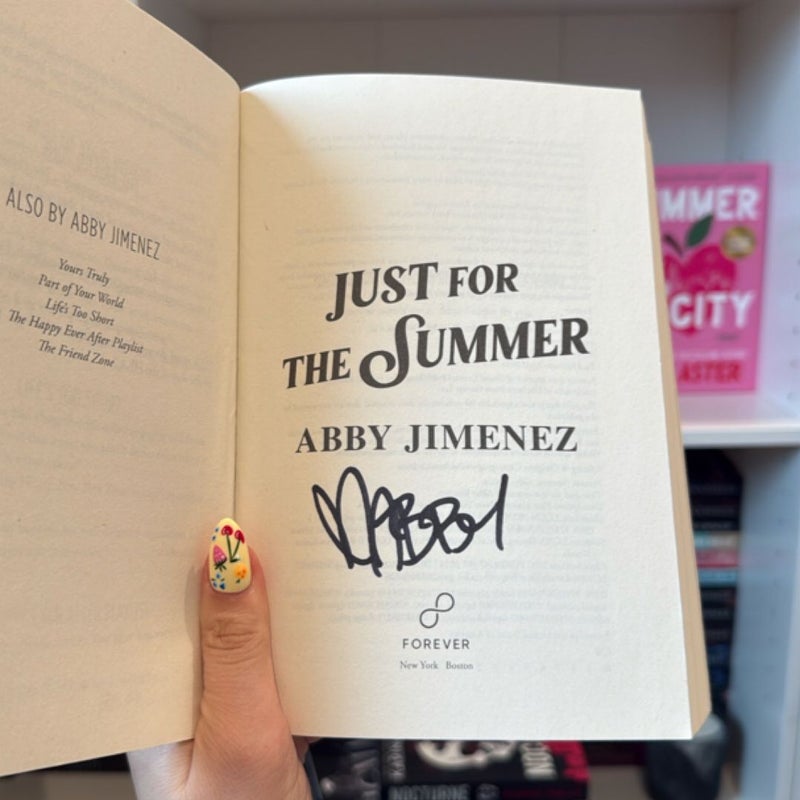 ALSO BY ABBY JIMENEZ
Yours Truly
Part of Your World
Life's Too Short
The Happy Ever After Playlist
The Friend Zone
JUST FOR
THE SUMMER
ABBY JIMENEZ
ABBY
FOREVER
New York Boston
UMMER
CITY
ASTER
NOCTURNE